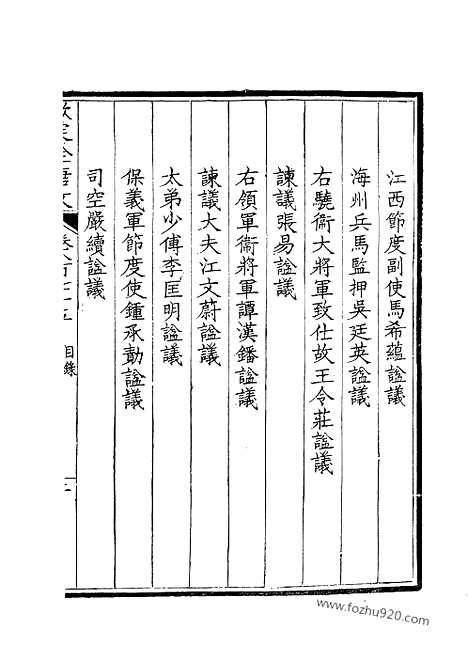 江西節度副使馬希蘊諡議
海州兵馬監押吳廷英諡議
右驍衞大將軍致仕故王令莊諡議
諫議張易諡議
右領軍衞將軍譚漢鐇諡議
諫議大夫江文蔚諡議
太弟少傅李匡明諡議
保義軍節度使鍾承勳諡議
司空嚴續諡議
欽定全唐文
目錄
www.fozhu920.com